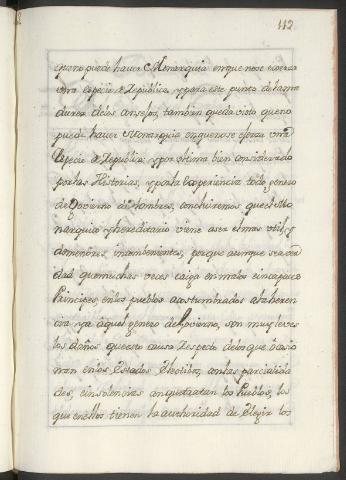 112
que no puede haver Monarquia en que no se exerza
una especie de Republica, y para este punto de la ma
durez de los consejos, tambien queda visto que no
puede haver Monarquia en que no se exerza una
Especie de Republica: y por ultimo bien considerado
por las Historias, y por la experiencia todo genero
de Govierno de hombres, concluiremos que el Mo
narquico y hereditario viene a ser el mas util, y
de menores inconbenientes, porque aunque sea ver
dad que muchas veces caiga en malos e incapaces
Principes, en los pueblos acostumbrados a la heren
cia y a aquel genero de Govierno, son muy leves
los daños que esto causa respecto de los que ocasio
nan en los Estados las parcialida
des, e insolencias en que tratan los Pueblos, los
que en ellos tienen la authoridad de Elegir los